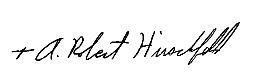 + A. Robert Hirschfeld